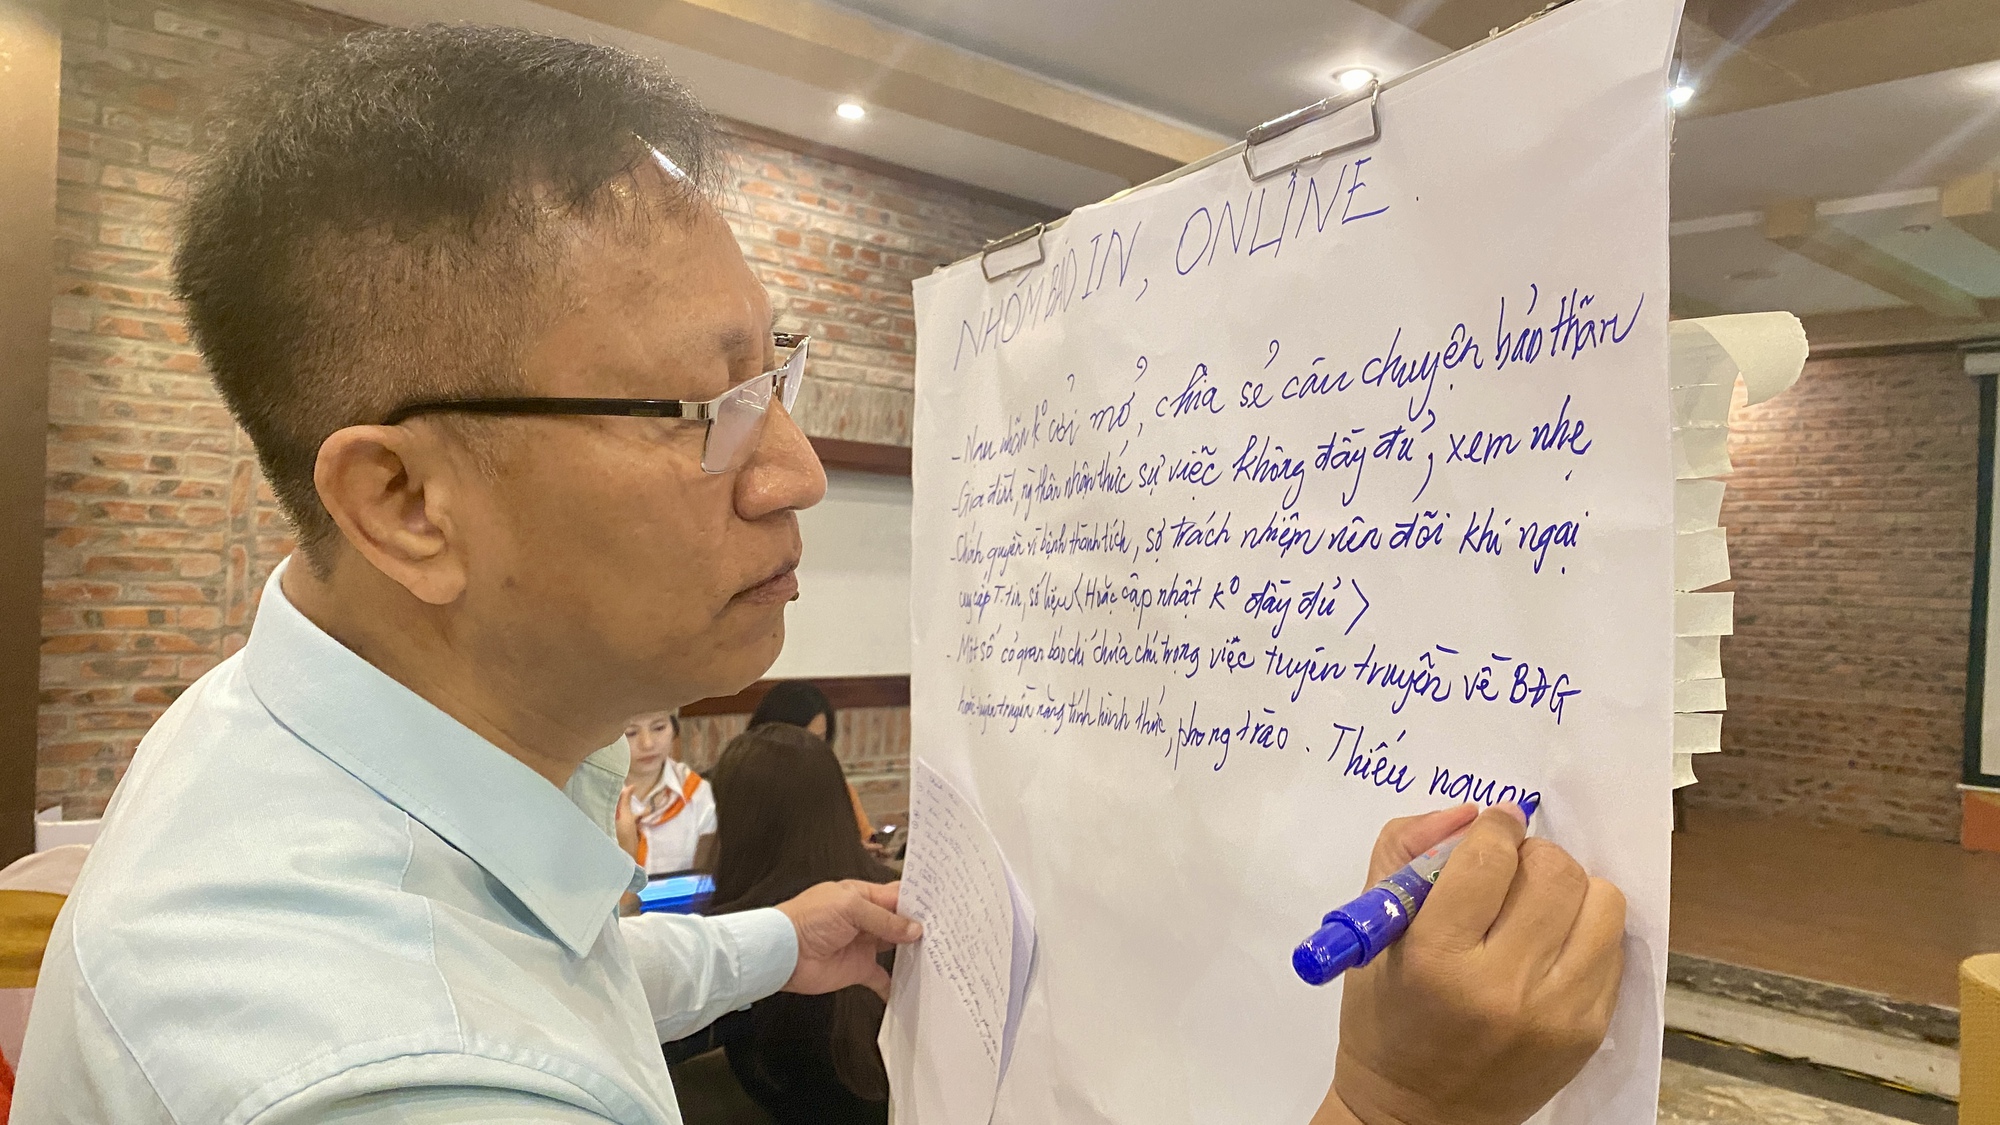 NHÓM BÁO IN, ONLINE.
- Nạn nhân k° cởi mở, chia sẻ câu chuyện bản thân
- Gia đình, ng thân nhận thức sự việc không đầy đủ, xem nhẹ
- Chính quyền vì bệnh thành tích, sợ trách nhiệm nên đôi khi ngại
cung cấp T.tin, số liệu (Hoặc cập nhật k° đầy đủ)
- Một số cơ quan báo chí chưa chú trọng việc tuyên truyền về BĐG
hoặc tuyên truyền nặng tính hình thức, phong trào. Thiếu nguồn